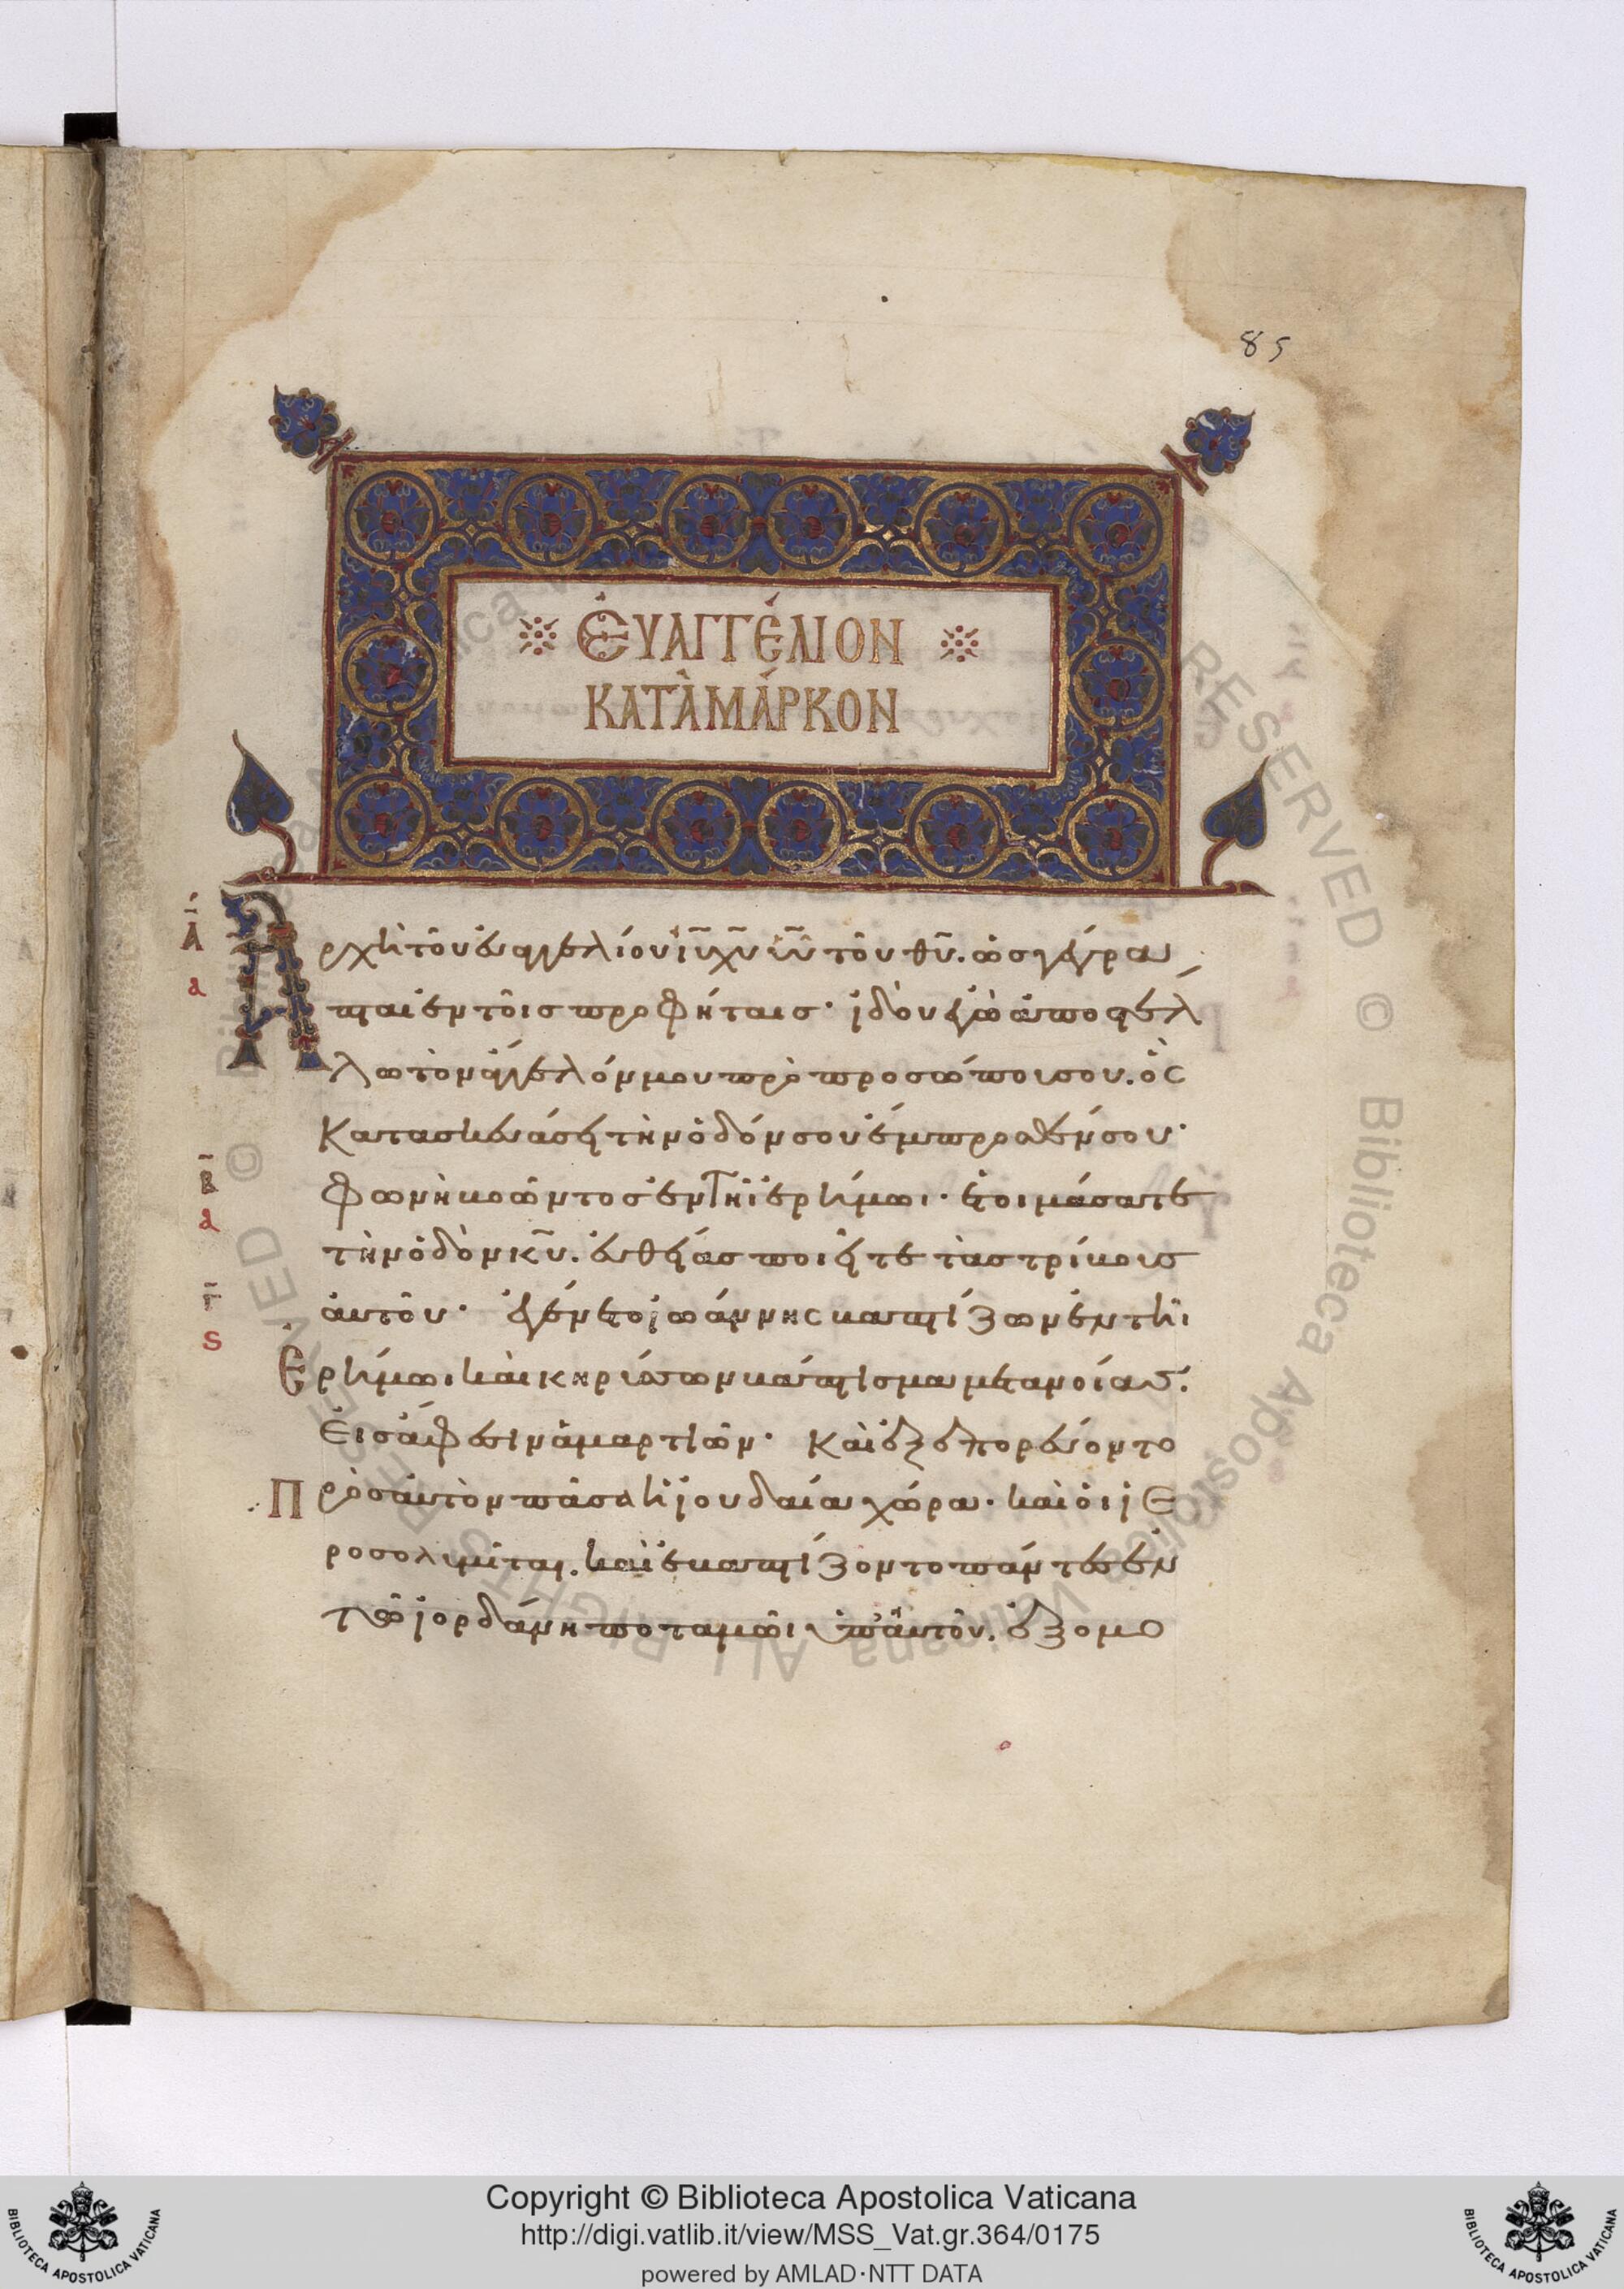 85
ΕΥΑΓΓΕΛΙΟΝ
ΚΑΤᾺ ΜΆΡΚΟΝ
Ἀρχὴ τοῦ εὐαγγελίου ῑῡ χ̄ῡ ῡῡ τοῦ θ̄ῡ. ὡς γέγρα
πται ἐν τοῖς προφήταις· ἰδοὺ ἐγὼ ἀποστέλ
λω τὸν ἄγγελόν μου πρὸ προσώπου σου. ὃς
κατασκευάσει τὴν ὁδόν σου ἔμπροσθέν σου·
φωνὴ βοῶντος ἐν τῆι ἐρήμωι· ἑτοιμάσατε
τὴν ὁδὸν κ̄ῡ. εὐθείας ποιεῖτε τὰς τρίβους
αὐτοῦ· ἐγένετο ἰωάννης βαπτίζων ἐν τῆι
Ἐρήμωι. καὶ κηρύσσων βάπτισμα μετανοίας.
Εἰς ἄφεσιν ἁμαρτιῶν· Καὶ ἐξεπορεύοντο
Πρὸς αὐτὸν πᾶσα ἡ ἰουδαία χώρα. καὶ οἱ ἱε
ροσολυμῖται. καὶ ἐβαπτίζοντο πάντες ἐν
τῶ ἰορδάνη ποταμῶι ὑπ' αὐτοῦ. ἐξομο
Copyright © Biblioteca Apostolica Vaticana
http://digi.vatlib.it/view/MSS_Vat.gr.364/0175
powered by AMLAD·NTT DATA
BIBLIOTECA APOSTOLICA VATICANA
BIBLIOTECA APOSTOLICA VATICANA